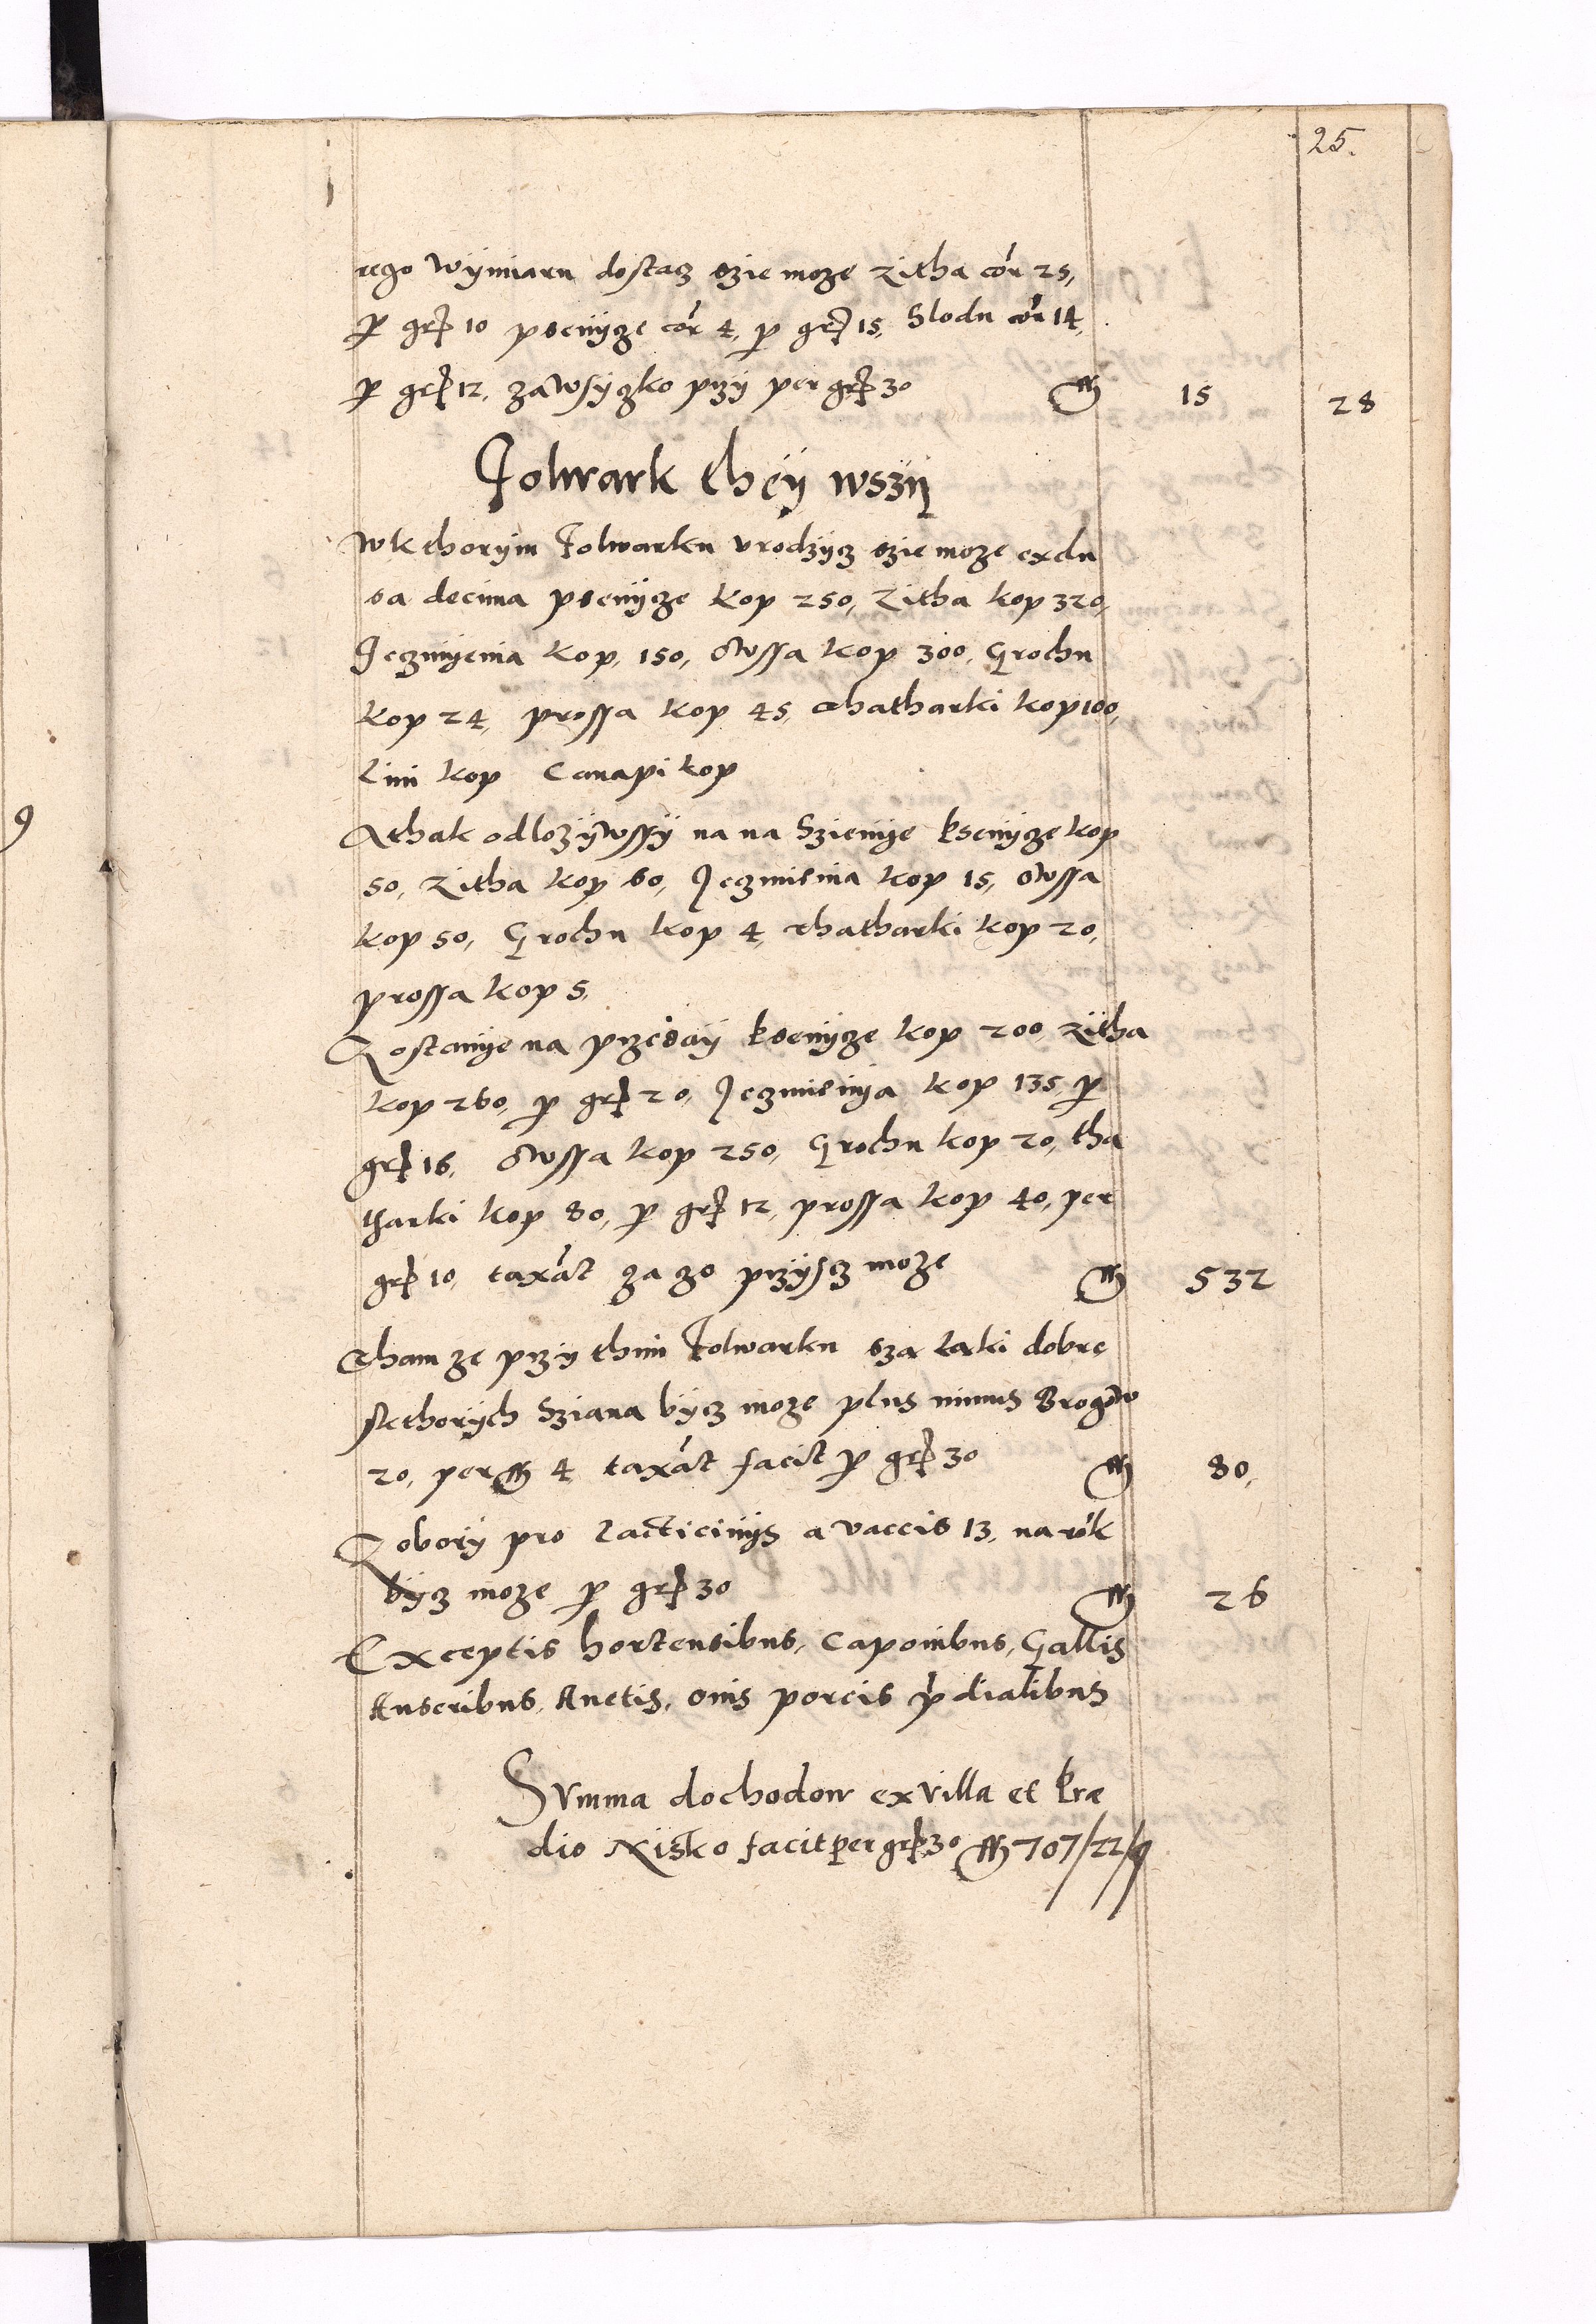 25.
rego wymiaru dostacz szie moze Zitha cor 25,
per gr 10 psenÿcze cor 4, per gr 15, Slodu cor 14,
per gr 12, zawsyczko przÿ per gr 30 fl 15 28
Folwark theÿ wszÿ
W kthorÿm Folwarku vrodzÿcz szie moze exclu
sa decima psenÿcze kop 250, Zitha kop 320,
Jeczmÿenia kop, 150, Owssa kop 300, Grochu
kop 24, prossa kop 45, Thatharki kop 100,
Lini kop Canapi kop
A thak odlozÿwssÿ na na Szienÿe Psenÿcze kop
50, Zitha kop 60, Jeczmienia kop 15, Owssa
kop 50, Grochu kop 4, Thatharki kop 20,
prossa kop 5,
Zostanÿe na przedaÿ Psenÿcze kop 200, Zÿtha
kop 260, per gr 20, Jeczmienÿa kop 135, per
gr 16, Owssa kop 250, Grochu kop 20, tha
tharki kop 80, per gr 12, prossa kop 40, per
gr 10, taxat za zo przÿscz moze fl 532
Tham ze przÿ thim Folwarku sza laki dobre
s kthorÿch Sziana bÿcz moze plus minus Brogow
20, per fl 4 taxat facit per gr 30 fl 80,
Z oborÿ pro lacticinÿs a vaccis 13, na rok
bÿcz moze per gr 30 fl 26
Exceptis hortensibus, Caponibus, Gallis
Anseribus, Anetis, ouis porcis pdialibus
Summa dochodow ex villa et Præ
dio Nisko facit per gr 30 fl 707/22/9